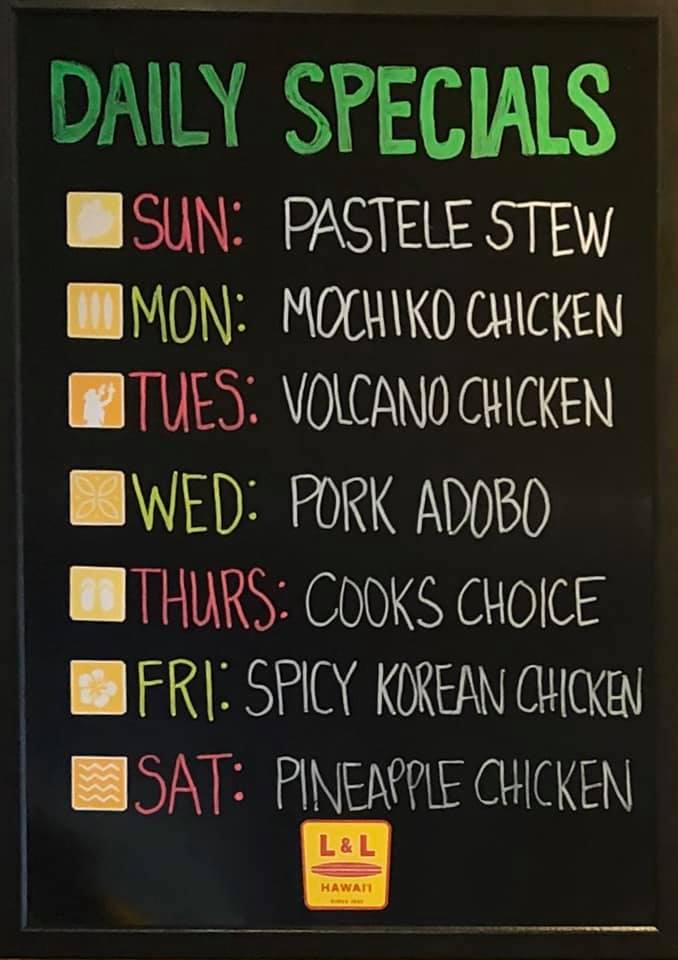 DAILY SPECIALS
SUN: PASTELE STEW
MON: MOCHIKO CHICKEN
TUES: VOLCANO CHICKEN
WED: PORK ADOBO
THURS: COOKS CHOICE
FRI: SPICY KOREAN CHICKEN
SAT: PINEAPPLE CHICKEN
L & L
HAWAI'I